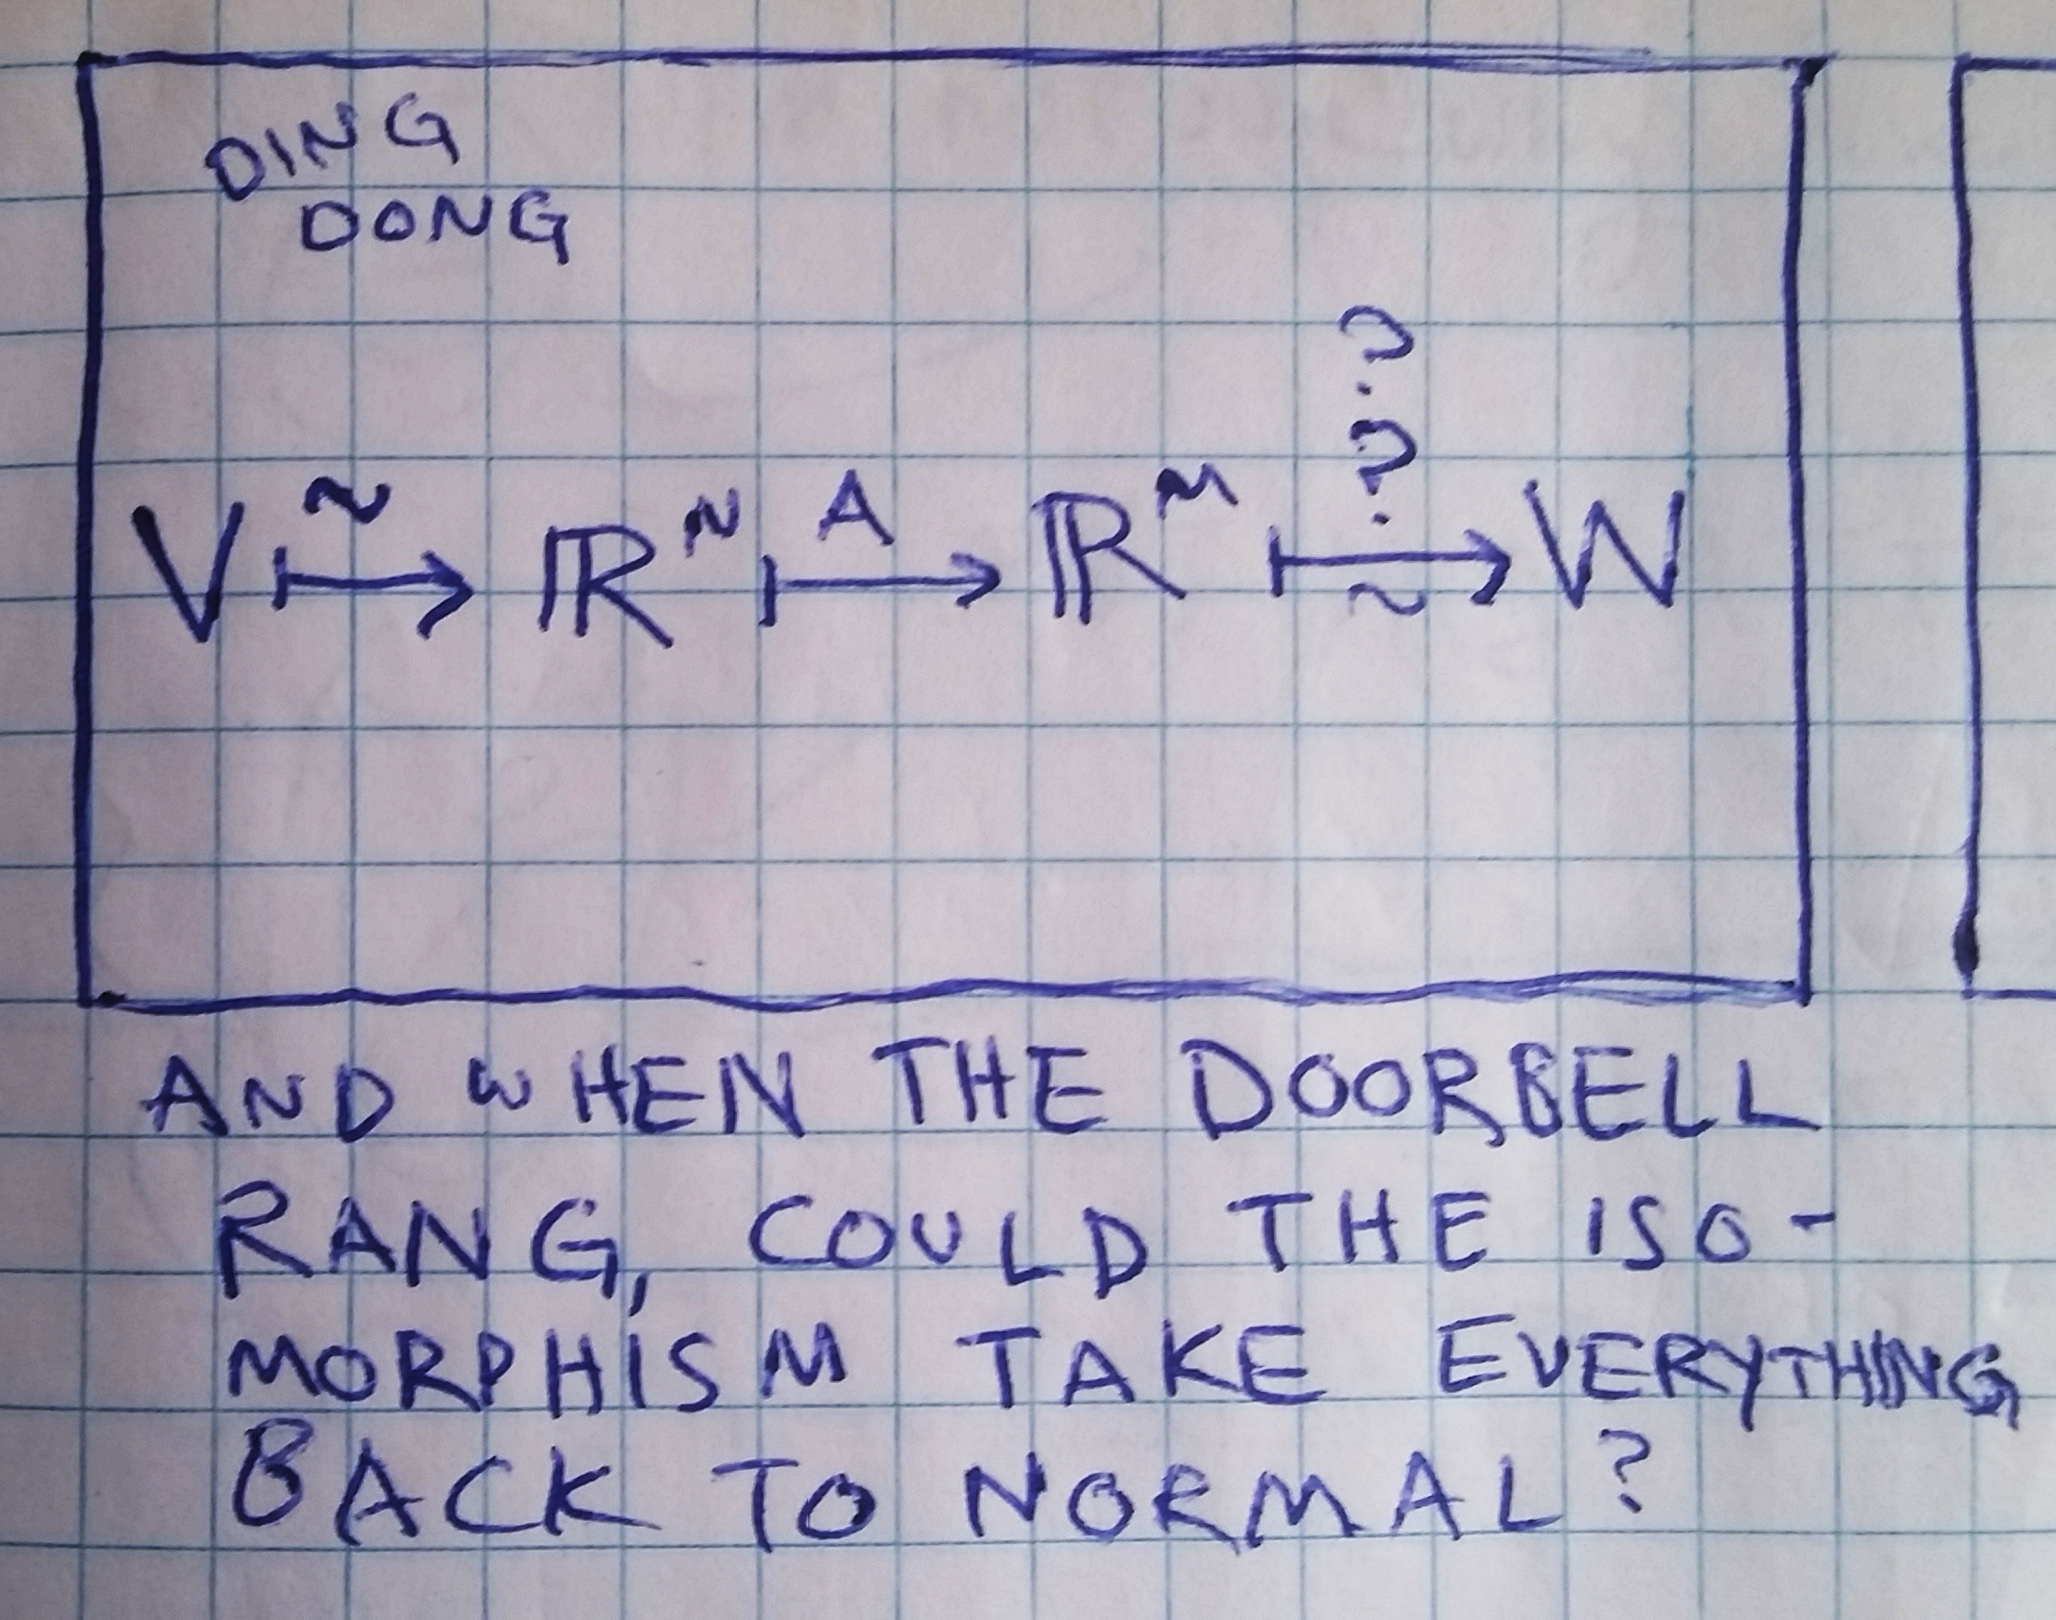 DING
DONG
? ?
V ⟼ ~ ℝ^N ⟼ A ℝ^M ⟼ ~ W
AND WHEN THE DOORBELL
RANG, COULD THE ISO-
MORPHISM TAKE EVERYTHING
BACK TO NORMAL?